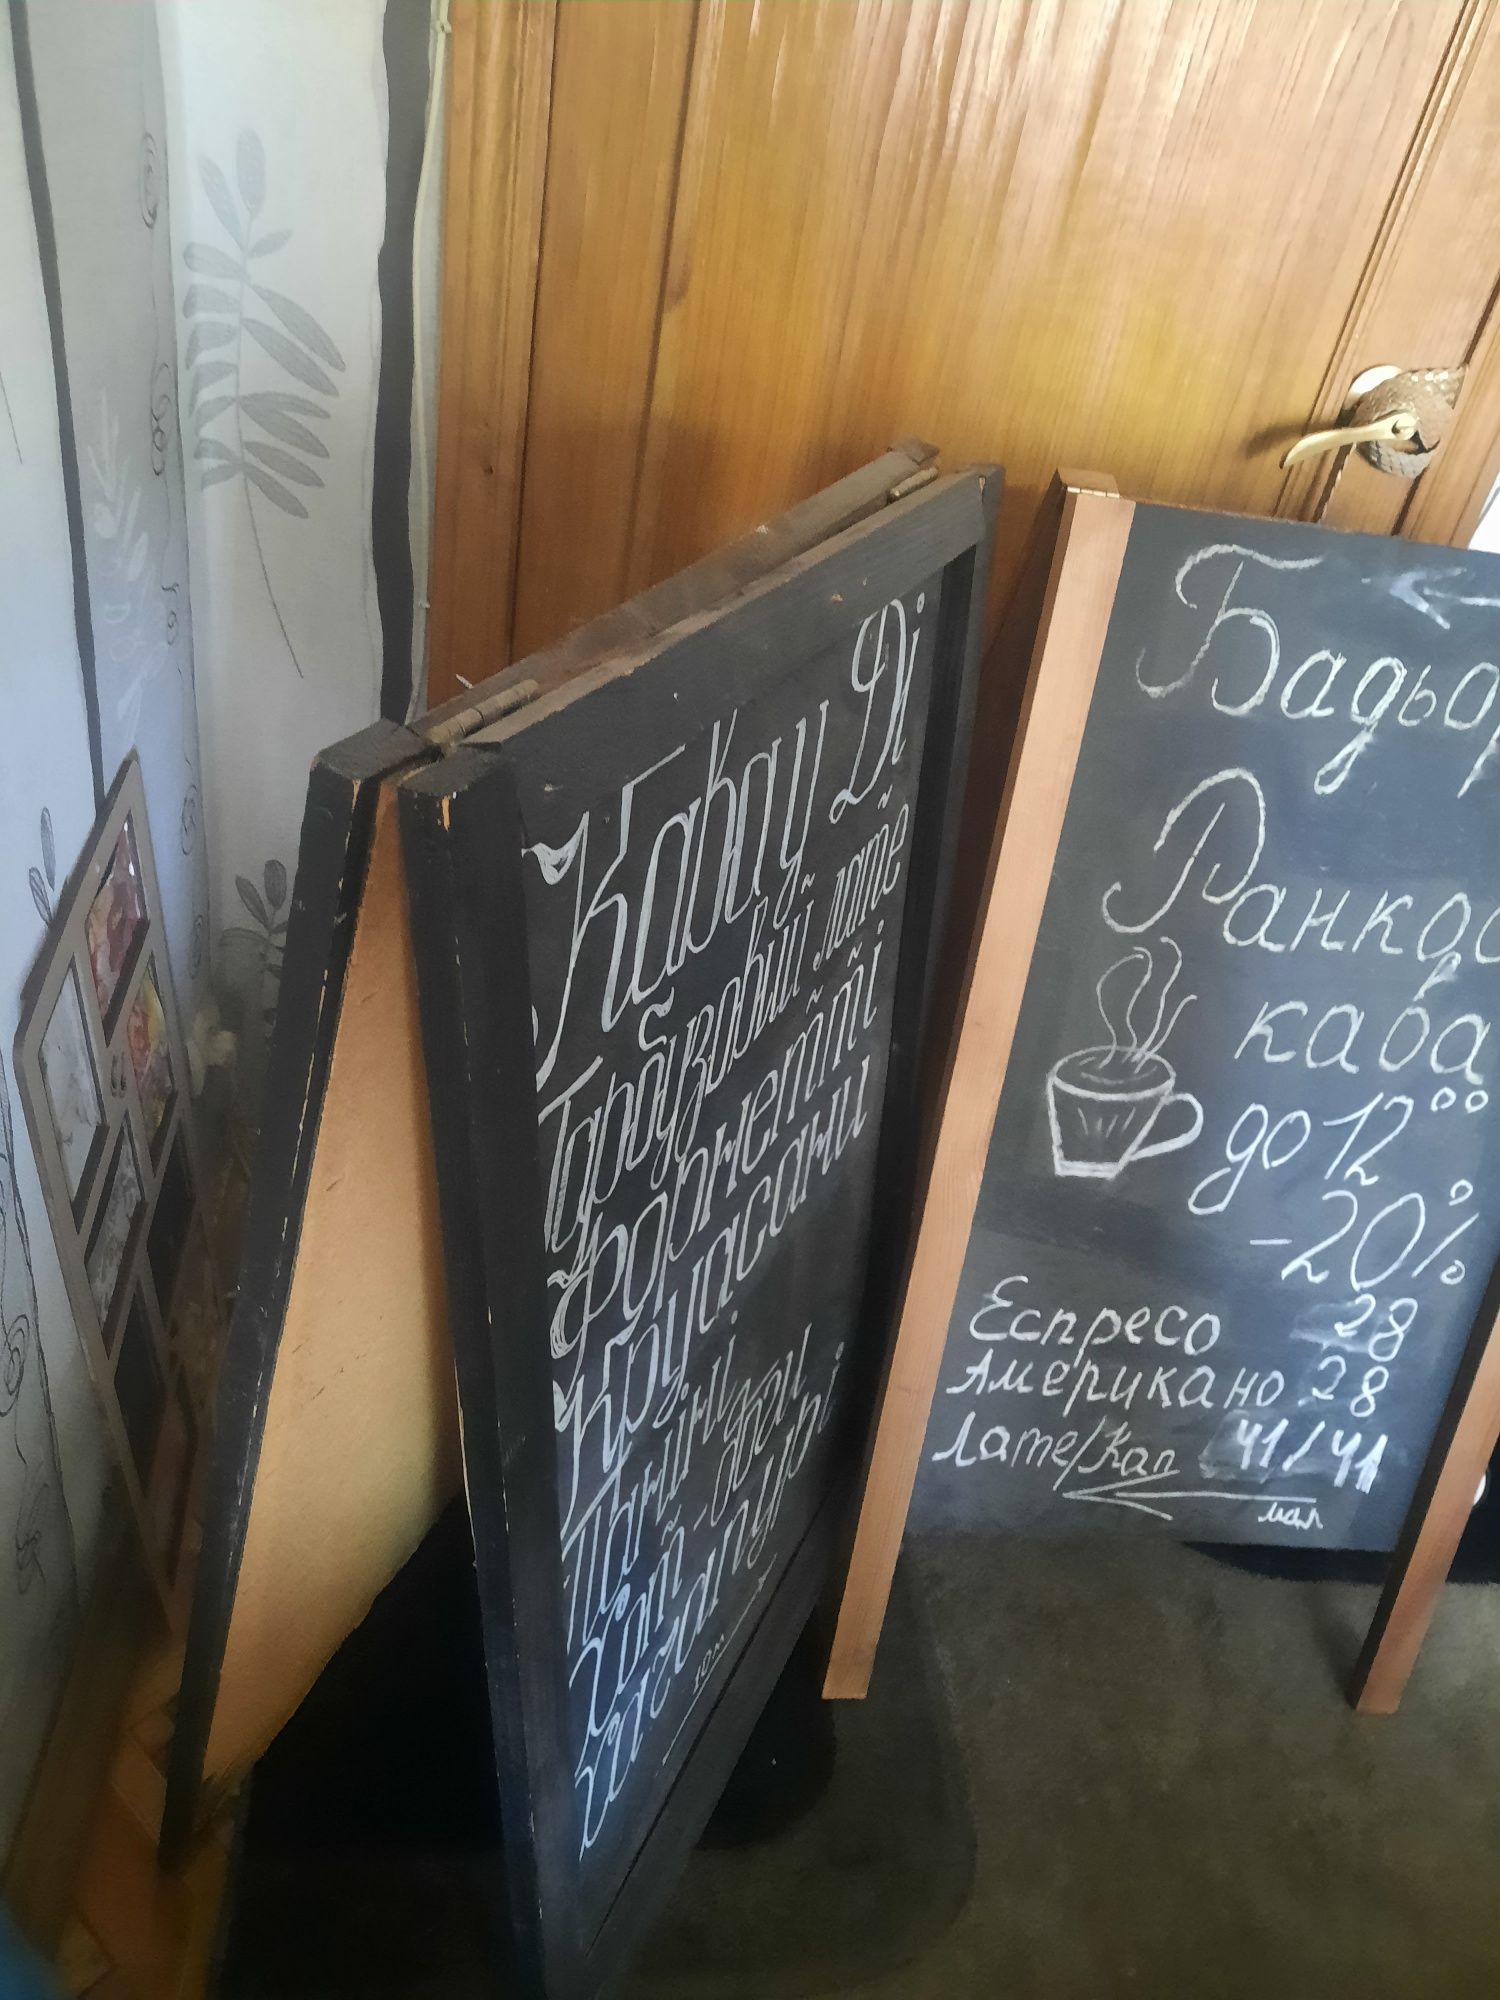 Кавау Ді
Гарбузовий лате
форнетті
Круасани
Паніні
хот-доги
хачапурі
10м
Бадьор
Ранков
кава
до 12⁰⁰
-20%
Еспресо 28
Американо 28
Лате/Кап 41/41
мал